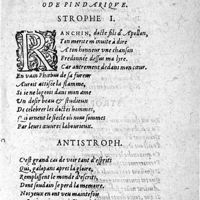 ODE PINDARIQVE.
STROPHE I.
RANCHIN, docte fils d'Apollon,
Ton merite m'inuite à dire
A ton honneur vne chanson
Fredonnée dessus ma lyre.
Car autrement dedans mon cœur,
En vain Phœbus de sa fureur
Auroit attisée la flamme,
Si ie ne logeois dans mon ame
Vn desir beau & studieux
De celebrer les doctes hommes,
Qui ornent le siecle où nous sommes
Par leurs œuures laborieux.
ANTISTROPH.
C'est grand cas de voir tant d'esprits
Qui, galopans apres la gloire,
Remplissent le monde d'escrits,
Dont soudain se perd la memoire.
Nos yeux en ont veu maintefois